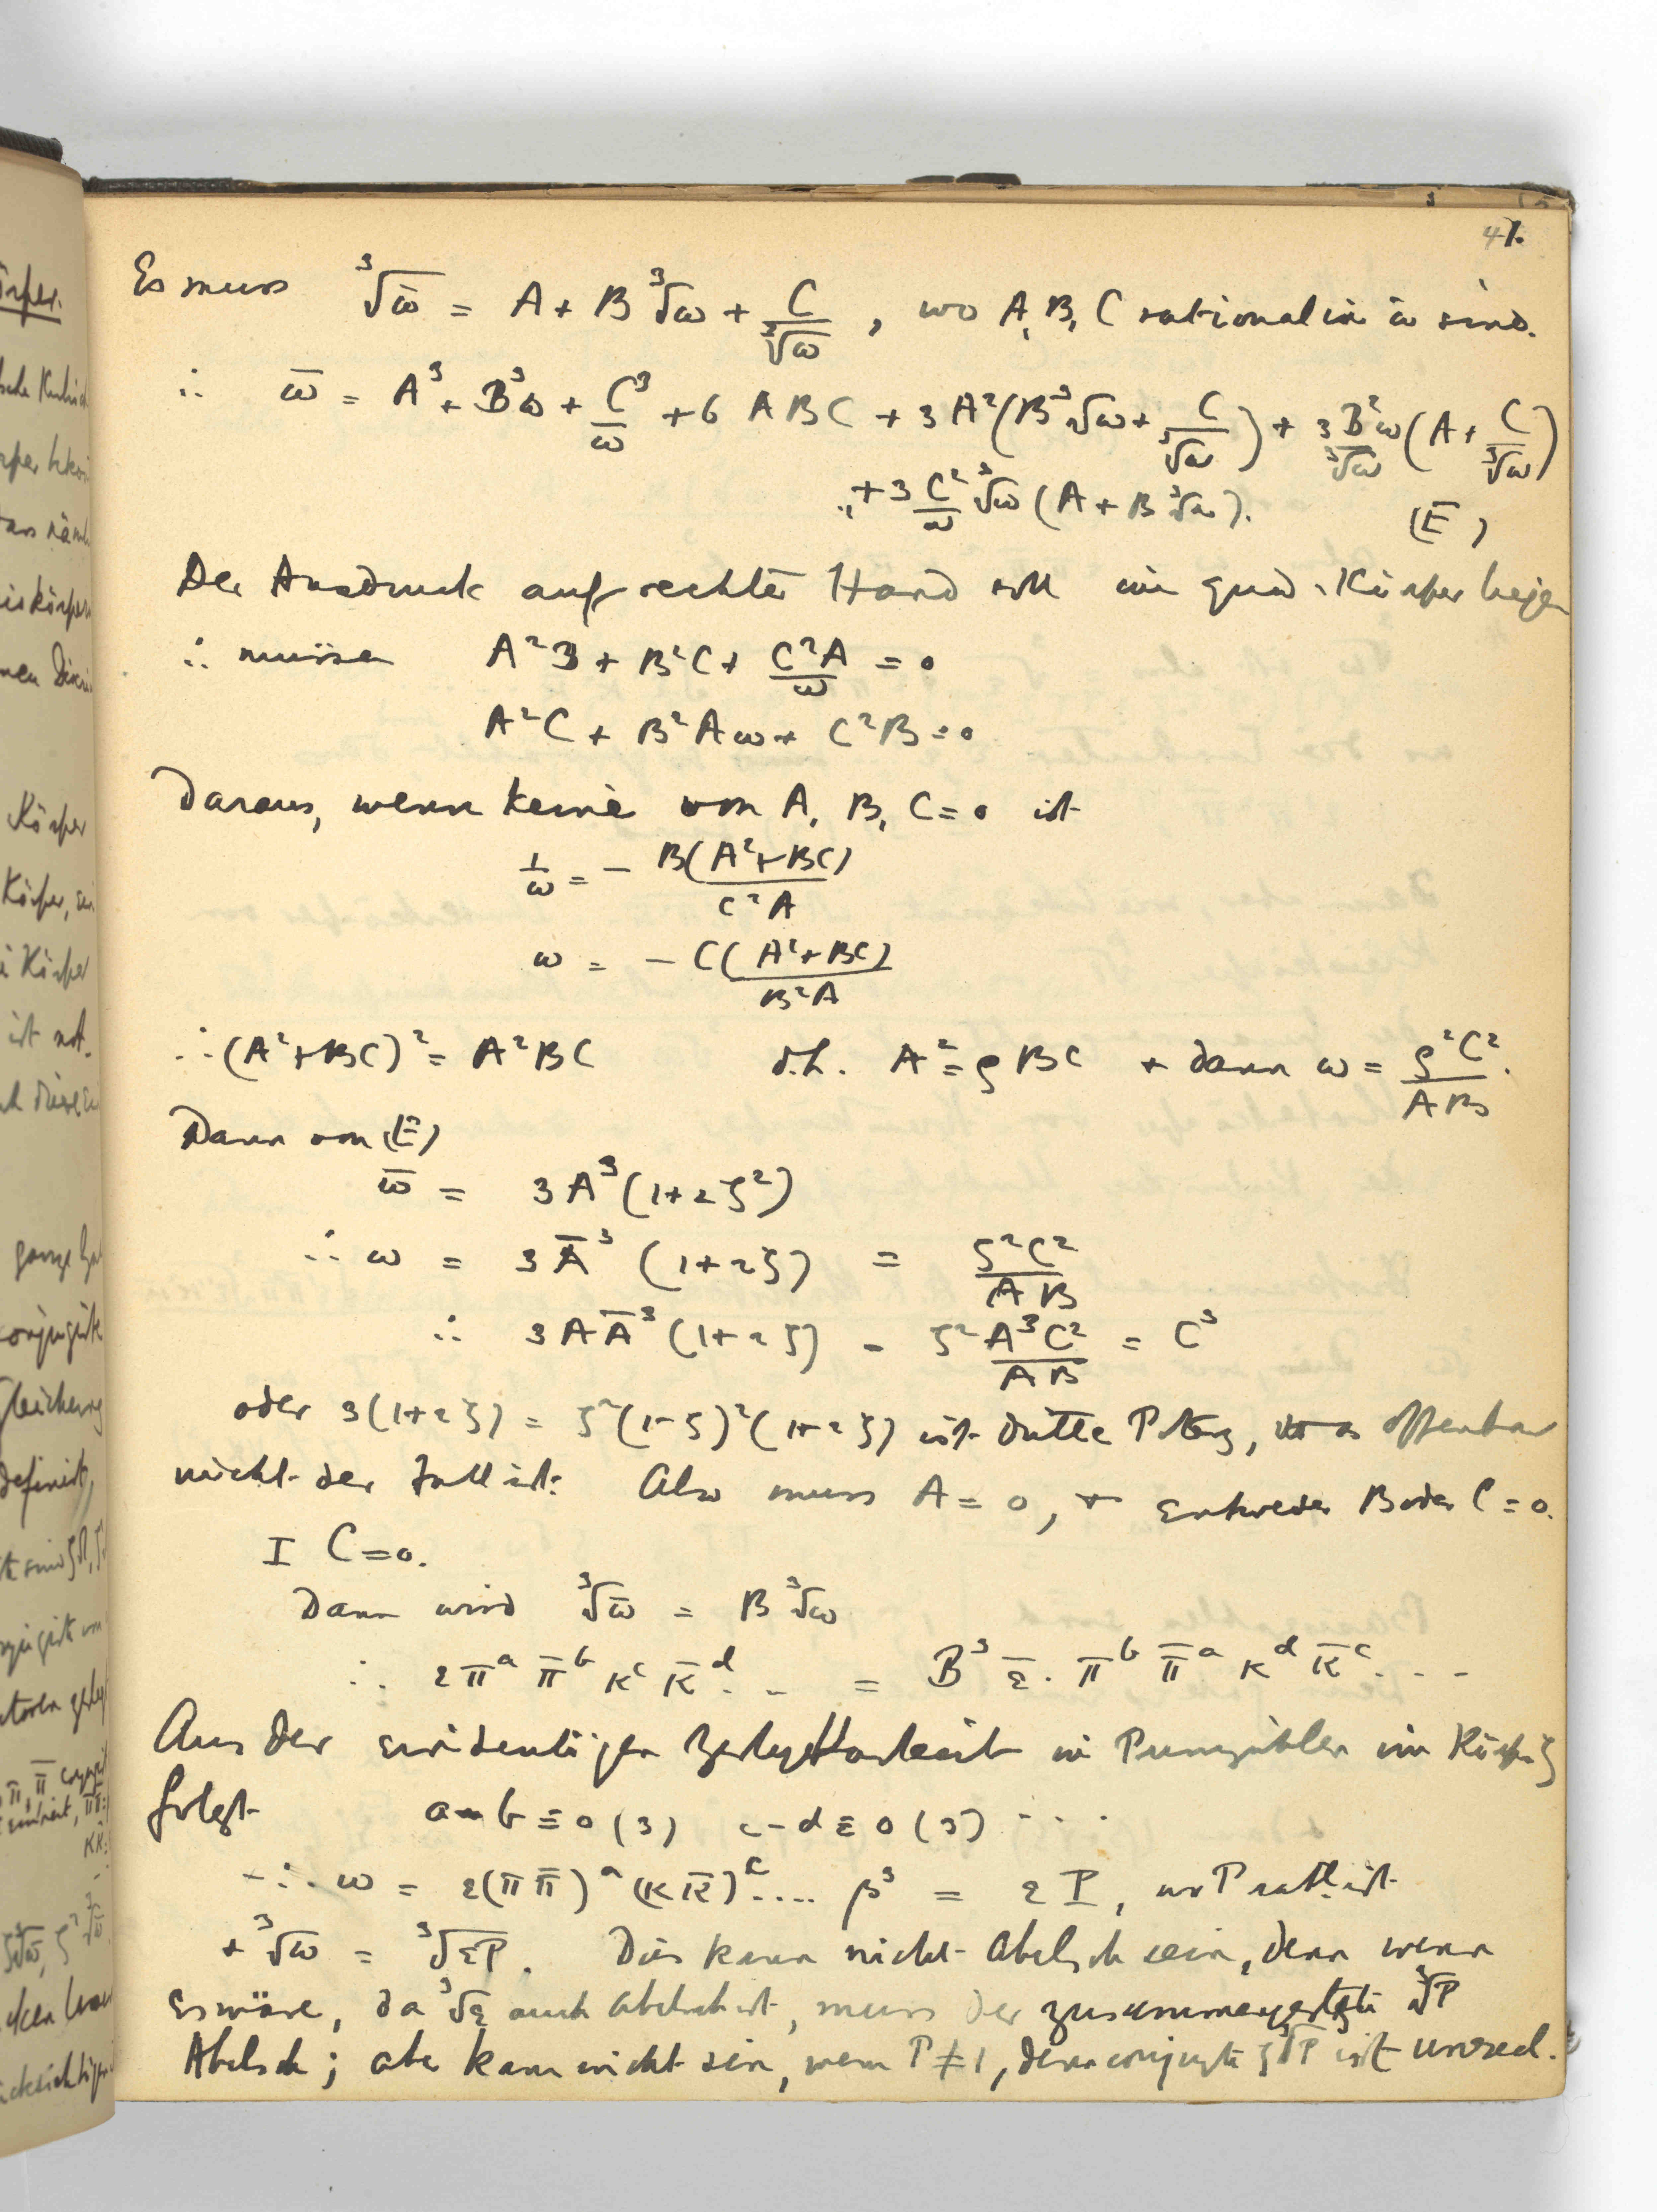 47.
Es muss ∛ω̄ = A + B ∛ω + C/∛ω , wo A, B, C rational in ω sind.
∴ ω̄ = A³ + B³ω + C³/ω + 6 ABC + 3A²(B ∛ω + C/∛ω) + 3B²ω/∛ω (A + C/∛ω)
+ 3 C²/ω ∛ω (A + B ∛ω). (E)
Der Ausdruck auf rechter Hand soll im quad. Körper liegen
∴ müssen A²B + B²C + C²A/ω = 0
A²C + B²Aω + C²B = 0
Daraus, wenn keine von A, B, C = 0 ist
1/ω = − B(A²+BC)/C²A
ω = − C(A²+BC)/B²A
∴ (A²+BC)² = A²BC d.h. A² = ζBC + dann ω = ζ²C²/AB.
Dann von (E)
ω̄ = 3A³(1+2ζ²)
∴ ω = 3Ā³ (1+2ζ) = ζ²C²/AB
∴ 3AĀ³(1+2ζ) = ζ² A³C²/AB = C³
oder 3(1+2ζ) = ζ²(1-ζ)²(1+2ζ) ist dritte Potenz, was offenbar
nicht der Fall ist. Also muss A = 0, + entweder B oder C = 0.
I C = 0.
Dann wird ∛ω̄ = B ∛ω
∴ ε π^a π̄^b κ^c κ̄^d . . = B³ ε̄ . π^b π̄^a κ^d κ̄^c . . -
Aus der eindeutigen Zerlegbarkeit in Primzahlen im Körper ζ
folgt a-b ≡ 0 (3) c-d ≡ 0 (3) . . .
∴ ω = ε(π π̄)^a (κ κ̄)^c .... β³ = ε P, wo P ratl. ist
+ ∛ω = ∛εP. Dies kann nicht Abelsch sein, denn wenn
es wäre, da ∛ε auch Abelsch ist, muss der zusammengesetzte ∛P
Abelsch; aber kann nicht sein, wenn P ≠ 1, denn conjugte ζ∛P ist unreel.